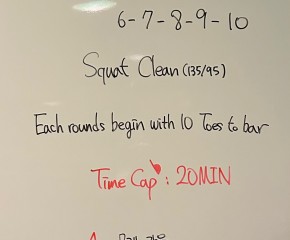 6-7-8-9-10
Squat Clean (135/95)
Each rounds begin with 10 Toes to bar
Time Cap : 20MIN